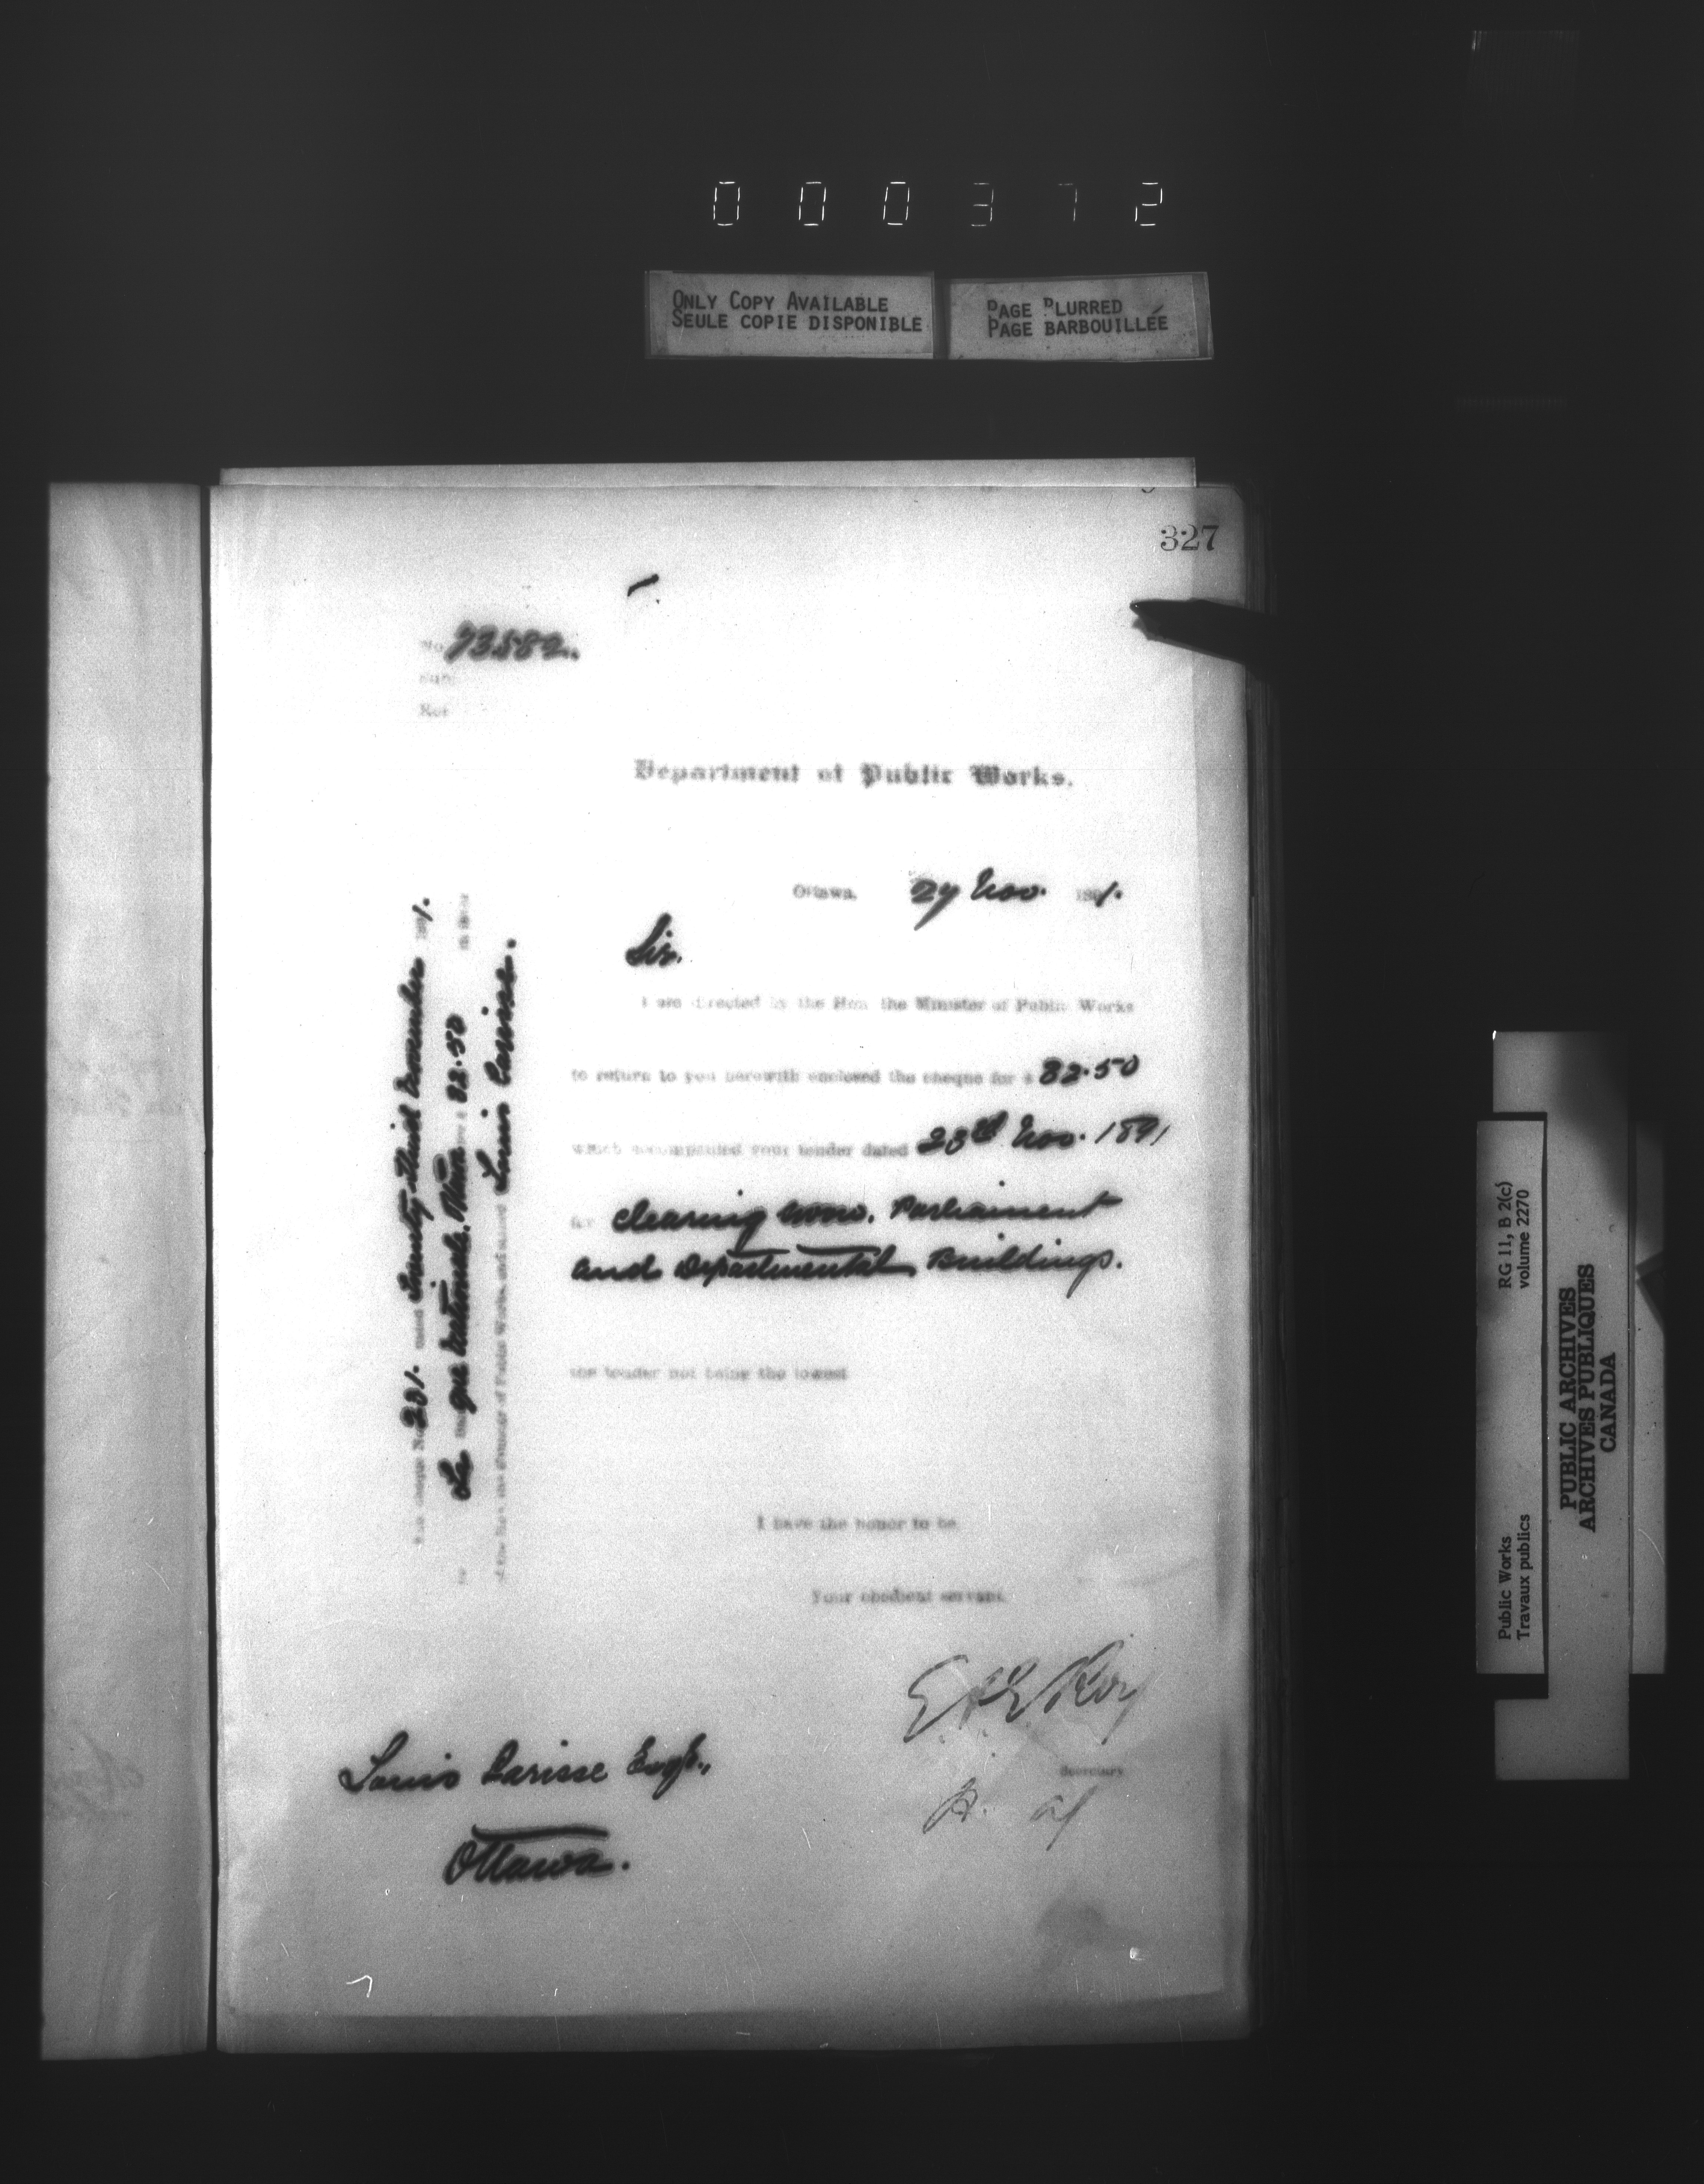 000372
ONLY COPY AVAILABLE
SEULE COPIE DISPONIBLE
PAGE BLURRED
PAGE BARBOUILLÉE
327
No. 73582.
Sub.
Ref.
Department of Public Works.
Ottawa, 27 Nov. 1891.
Sir,
I am directed by the Hon. the Minister of Public Works
to return to you herewith enclosed the cheque for $ 82.50
which accompanied your tender dated 23rd Nov. 1891
for clearing snow. Parliament
and Departmental Buildings.
the tender not being the lowest
I have the honor to be,
Your obedient servant,
E F E Roy
Secretary
Louis Larisse Esqr.,
Ottawa.
The cheque No. 201. dated Twenty third November 1891.
La que Nationale, Ottawa $ 82.50
of the Public Works, and signed Louis Larisse.
Public Works
Travaux publics
RG 11, B 2(c)
volume 2270
PUBLIC ARCHIVES
ARCHIVES PUBLIQUES
CANADA